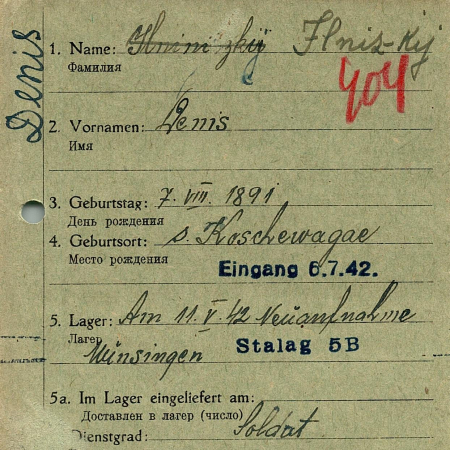 Denis
1. Name: Ilnizkij Ilniz-Kij
Фамилия
404
2. Vornamen: Denis
Имя
3. Geburtstag: 7. VIII. 1891
День рождения
4. Geburtsort: s. Koschewagae
Место рождения
Eingang 6.7.42.
5. Lager: Am 11. V. 42 Neuaufnahme
Лагерь
Münsingen Stalag 5B
5a. Im Lager eingeliefert am:
Доставлен в лагерь (число)
Dienstgrad: Soldat